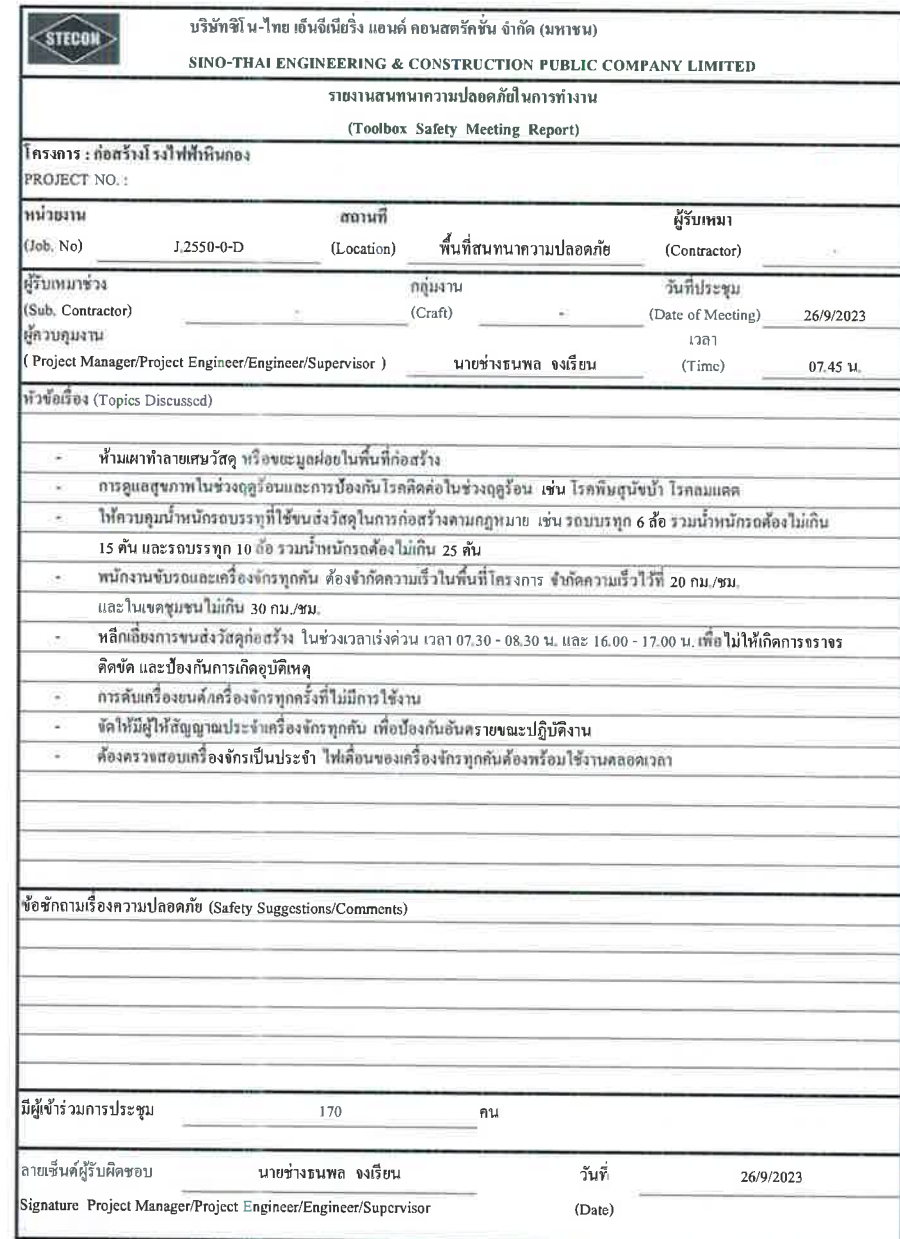 STECON
บริษัทซิโน-ไทย เอ็นจีเนียริ่ง แอนด์ คอนสตรัคชั่น จำกัด (มหาชน)
SINO-THAI ENGINEERING & CONSTRUCTION PUBLIC COMPANY LIMITED
รายงานสนทนาความปลอดภัยในการทำงาน
(Toolbox Safety Meeting Report)
โครงการ : ก่อสร้างโรงไฟฟ้าหินกอง
PROJECT NO. :
หน่วยงาน สถานที่ ผู้รับเหมา
(Job. No) J.2550-0-D (Location) พื้นที่สนทนาความปลอดภัย (Contractor) -
ผู้รับเหมาช่วง กลุ่มงาน วันที่ประชุม
(Sub. Contractor) - (Craft) - (Date of Meeting) 26/9/2023
ผู้ควบคุมงาน เวลา
( Project Manager/Project Engineer/Engineer/Supervisor ) นายช่างธนพล จงเรียน (Time) 07.45 น.
หัวข้อเรื่อง (Topics Discussed)
- ห้ามเผาทำลายเศษวัสดุ หรือขยะมูลฝอยในพื้นที่ก่อสร้าง
- การดูแลสุขภาพในช่วงฤดูร้อนและการป้องกันโรคติดต่อในช่วงฤดูร้อน เช่น โรคพิษสุนัขบ้า โรคลมแดด
- ให้ควบคุมน้ำหนักรถบรรทุกที่ใช้ขนส่งวัสดุในการก่อสร้างตามกฎหมาย เช่น รถบบรทุก 6 ล้อ รวมน้ำหนักรถต้องไม่เกิน
15 ตัน และรถบรรทุก 10 ล้อ รวมน้ำหนักรถต้องไม่เกิน 25 ตัน
- พนักงานขับรถและเครื่องจักรทุกคัน ต้องจำกัดความเร็วในพื้นที่โครงการ จำกัดความเร็วไว้ที่ 20 กม./ชม.
และในเขตชุมชนไม่เกิน 30 กม./ชม.
- หลีกเลี่ยงการขนส่งวัสดุก่อสร้าง ในช่วงเวลาเร่งด่วน เวลา 07.30 - 08.30 น. และ 16.00 - 17.00 น. เพื่อไม่ให้เกิดการจราจร
ติดขัด และป้องกันการเกิดอุบัติเหตุ
- การดับเครื่องยนต์/เครื่องจักรทุกครั้งที่ไม่มีการใช้งาน
- จัดให้มีผู้ให้สัญญาณประจำเครื่องจักรทุกคัน เพื่อป้องกันอันตรายขณะปฏิบัติงาน
- ต้องตรวจสอบเครื่องจักรเป็นประจำ ไฟเตือนของเครื่องจักรทุกคันต้องพร้อมใช้งานตลอดเวลา
ข้อซักถามเรื่องความปลอดภัย (Safety Suggestions/Comments)
มีผู้เข้าร่วมการประชุม 170 คน
ลายเซ็นต์ผู้รับผิดชอบ นายช่างธนพล จงเรียน วันที่ 26/9/2023
Signature Project Manager/Project Engineer/Engineer/Supervisor (Date)